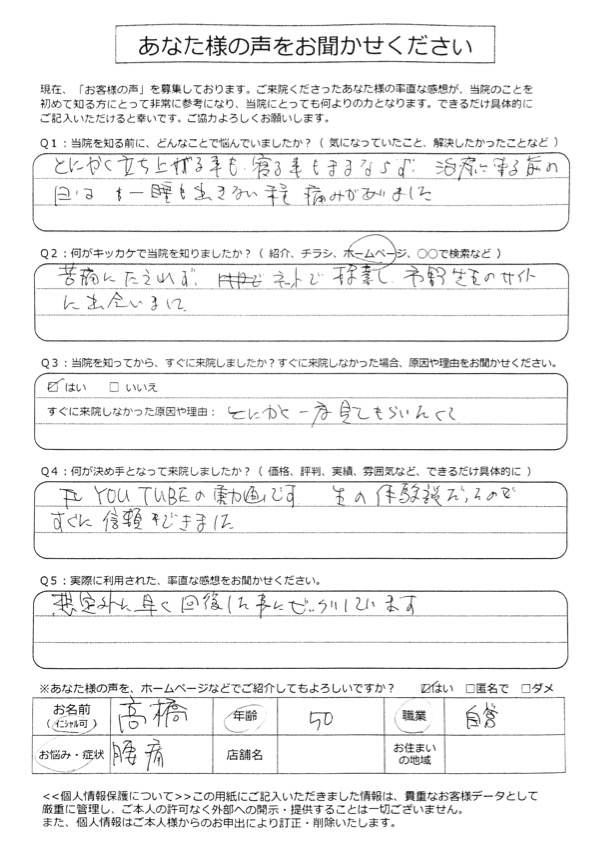 あなた様の声をお聞かせください
現在、「お客様の声」を募集しております。ご来院くださったあなた様の率直な感想が、当院のことを
初めて知る方にとって非常に参考になり、当院にとっても何よりの力となります。できるだけ具体的に
ご記入いただけると幸いです。ご協力よろしくお願いします。
Q1:当院を知る前に、どんなことで悩んでいましたか?( 気になっていたこと、解決したかったことなど )
とにかく立ち上がる事も、寝る事もままならず、治療に来る前の
日は 一睡も出きない程 痛みがありました
Q2:何がキッカケで当院を知りましたか?( 紹介、チラシ、ホームページ、〇〇で検索など )
苦痛にたえれず、ネットで 検索し、市野先生のサイト
に出会いました
Q3:当院を知ってから、すぐに来院しましたか?すぐに来院しなかった場合、原因や理由をお聞かせください。
☑ はい □ いいえ
すぐに来院しなかった原因や理由: とにかく一度見てもらいたくて
Q4:何が決め手となって来院しましたか?( 価格、評判、実績、雰囲気など、できるだけ具体的に )
YOU TUBEの動画です 生の体験談だったので
すぐに信頼できました
Q5:実際に利用された、率直な感想をお聞かせください。
想定外に早く回復した事にビックリしています
※あなた様の声を、ホームページなどでご紹介してもよろしいですか? ☑はい □匿名で □ダメ
お名前 高橋 年齢 50 職業 自営
(イニシャル可)
お悩み・症状 腰痛 店舗名 お住まい
の地域
<<個人情報保護について>>この用紙にご記入いただきました情報は、貴重なお客様データとして
厳重に管理し、ご本人の許可なく外部への開示・提供することは一切ございません。
また、個人情報はご本人様からのお申出により訂正・削除いたします。